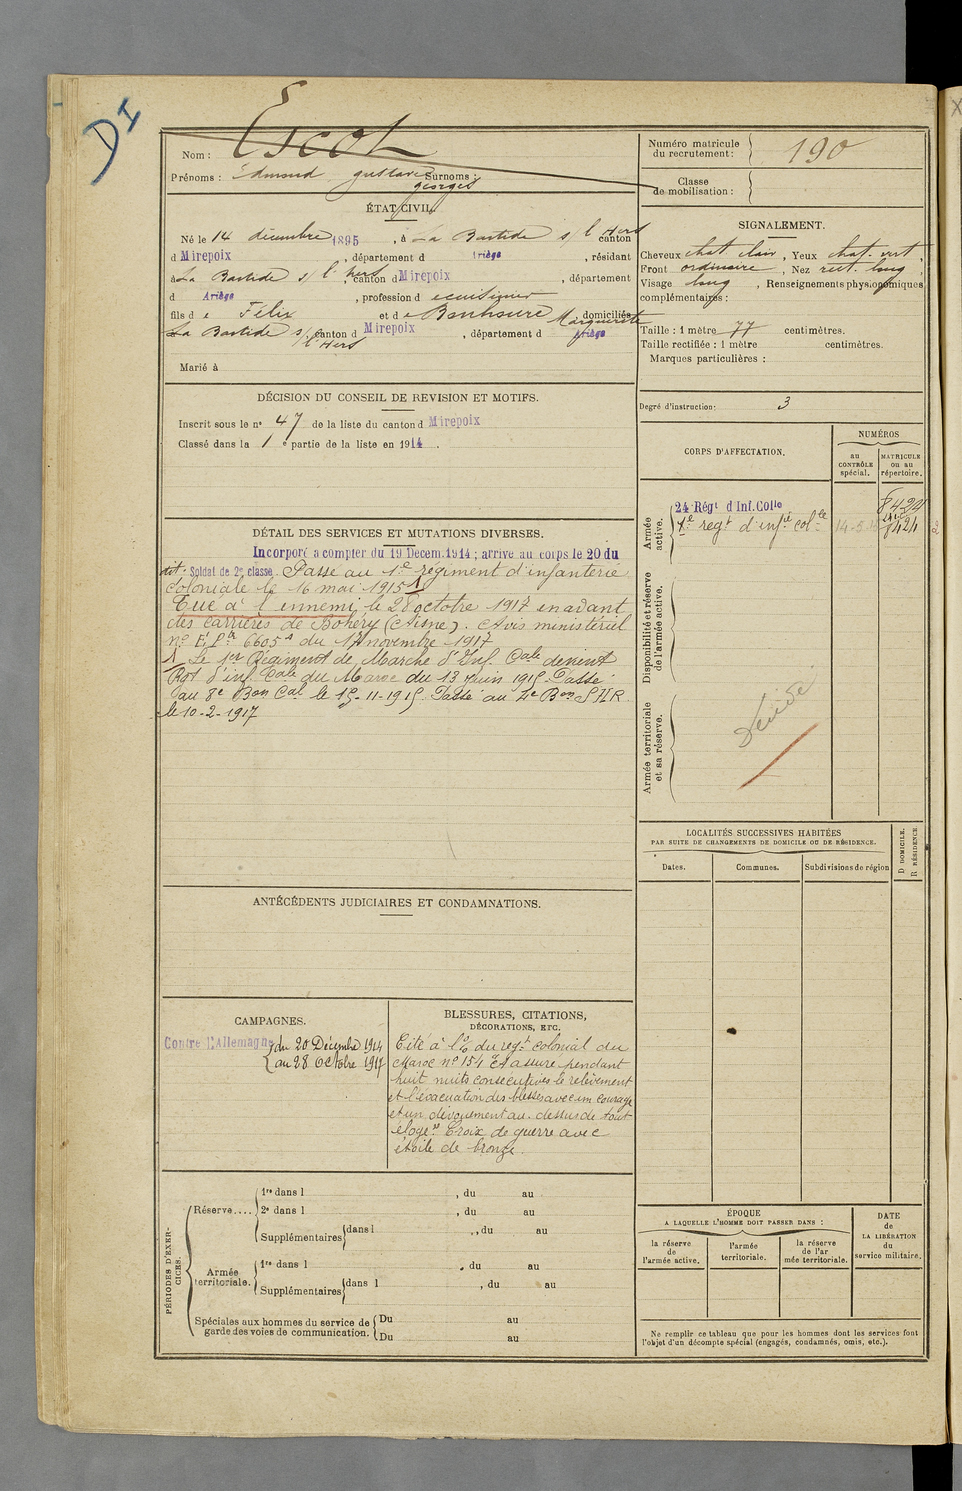 DI
Nom : Escot
Prénoms : Edmond Gustave Surnoms :
Georges
ÉTAT CIVIL.
Né le 14 décembre 1895, à La Bastide s/ l'Hers canton
d Mirepoix, département d Ariège, résidant
à La Bastide s/ l'Hers, canton d Mirepoix, département
d Ariège, profession d
fils de Félix et de Bonhoure Marguerite, domiciliés
La Bastide s/ l'Hers, canton d Mirepoix, département d Ariège
Marié à
DÉCISION DU CONSEIL DE REVISION ET MOTIFS.
Inscrit sous le n° 47 de la liste du canton d Mirepoix
Classé dans la 1e partie de la liste en 1914.
DÉTAIL DES SERVICES ET MUTATIONS DIVERSES.
Incorporé à compter du 19 Décem. 1914 ; arrivé au corps le 20 du
dit. Soldat de 2e classe. Passé au 1e régiment d'infanterie
coloniale le 16 mai 1915 1
Tué à l'ennemi, le 28 octobre 1917 en avant
des carrières de Bohéry (Aisne). Avis ministériel
n° 6605 du 17 novembre 1917
1 Le 1er Régiment de Marche d'Inf. Cale devient
Rgt d'inf. Cale du Maroc du 13 juin 1915. Passé
au 8e Bon Cal le 15-11-1915. Passé au 4e Bon
le 10-2-1917
ANTÉCÉDENTS JUDICIAIRES ET CONDAMNATIONS.
CAMPAGNES.
Contre l'Allemagne du 20 Décembre 1914
au 28 Octobre 1917
BLESSURES, CITATIONS,
DÉCORATIONS, ETC.
Cité à l'o/ du regt colonial du
Maroc n° 154 "A assuré pendant
huit nuits consécutives le relèvement
et l'évacuation des blessés avec un courage
et un dévouement au-dessus de tout
éloge" Croix de guerre avec
étoile de bronze.
PÉRIODES D'EXERCICES.
Réserve.... 1re dans l , du au
2e dans l , du au
Supplémentaires dans l , du au
Armée territoriale. 1re dans l , du au
Supplémentaires dans l , du au
Spéciales aux hommes du service de garde des voies de communication. Du au
Du au
Numéro matricule du recrutement : 190
Classe de mobilisation :
SIGNALEMENT.
Cheveux chat. clair, Yeux chat. vert,
Front ordinaire, Nez rect. long,
Visage long, Renseignements physionomiques
complémentaires :
Taille : 1 mètre 77 centimètres.
Taille rectifiée : 1 mètre centimètres.
Marques particulières :
Degré d'instruction : 3
CORPS D'AFFECTATION.
NUMÉROS
au CONTRÔLE spécial.
MATRICULE ou au répertoire.
Armée active.
24 Régt d'Inf. Colle 8424
1e regt d'infie colle 8424
Disponibilité et réserve de l'armée active.
Armée territoriale et sa réserve.
Décédé
LOCALITÉS SUCCESSIVES HABITÉES
PAR SUITE DE CHANGEMENTS DE DOMICILE OU DE RÉSIDENCE.
Dates.
Communes.
Subdivisions de région
D DOMICILE.
R RÉSIDENCE.
ÉPOQUE
A LAQUELLE L'HOMME DOIT PASSER DANS :
la réserve de l'armée active.
l'armée territoriale.
la réserve de l'armée territoriale.
DATE de LA LIBÉRATION du service militaire.
Ne remplir ce tableau que pour les hommes dont les services font
l'objet d'un décompte spécial (engagés, condamnés, omis, etc.).